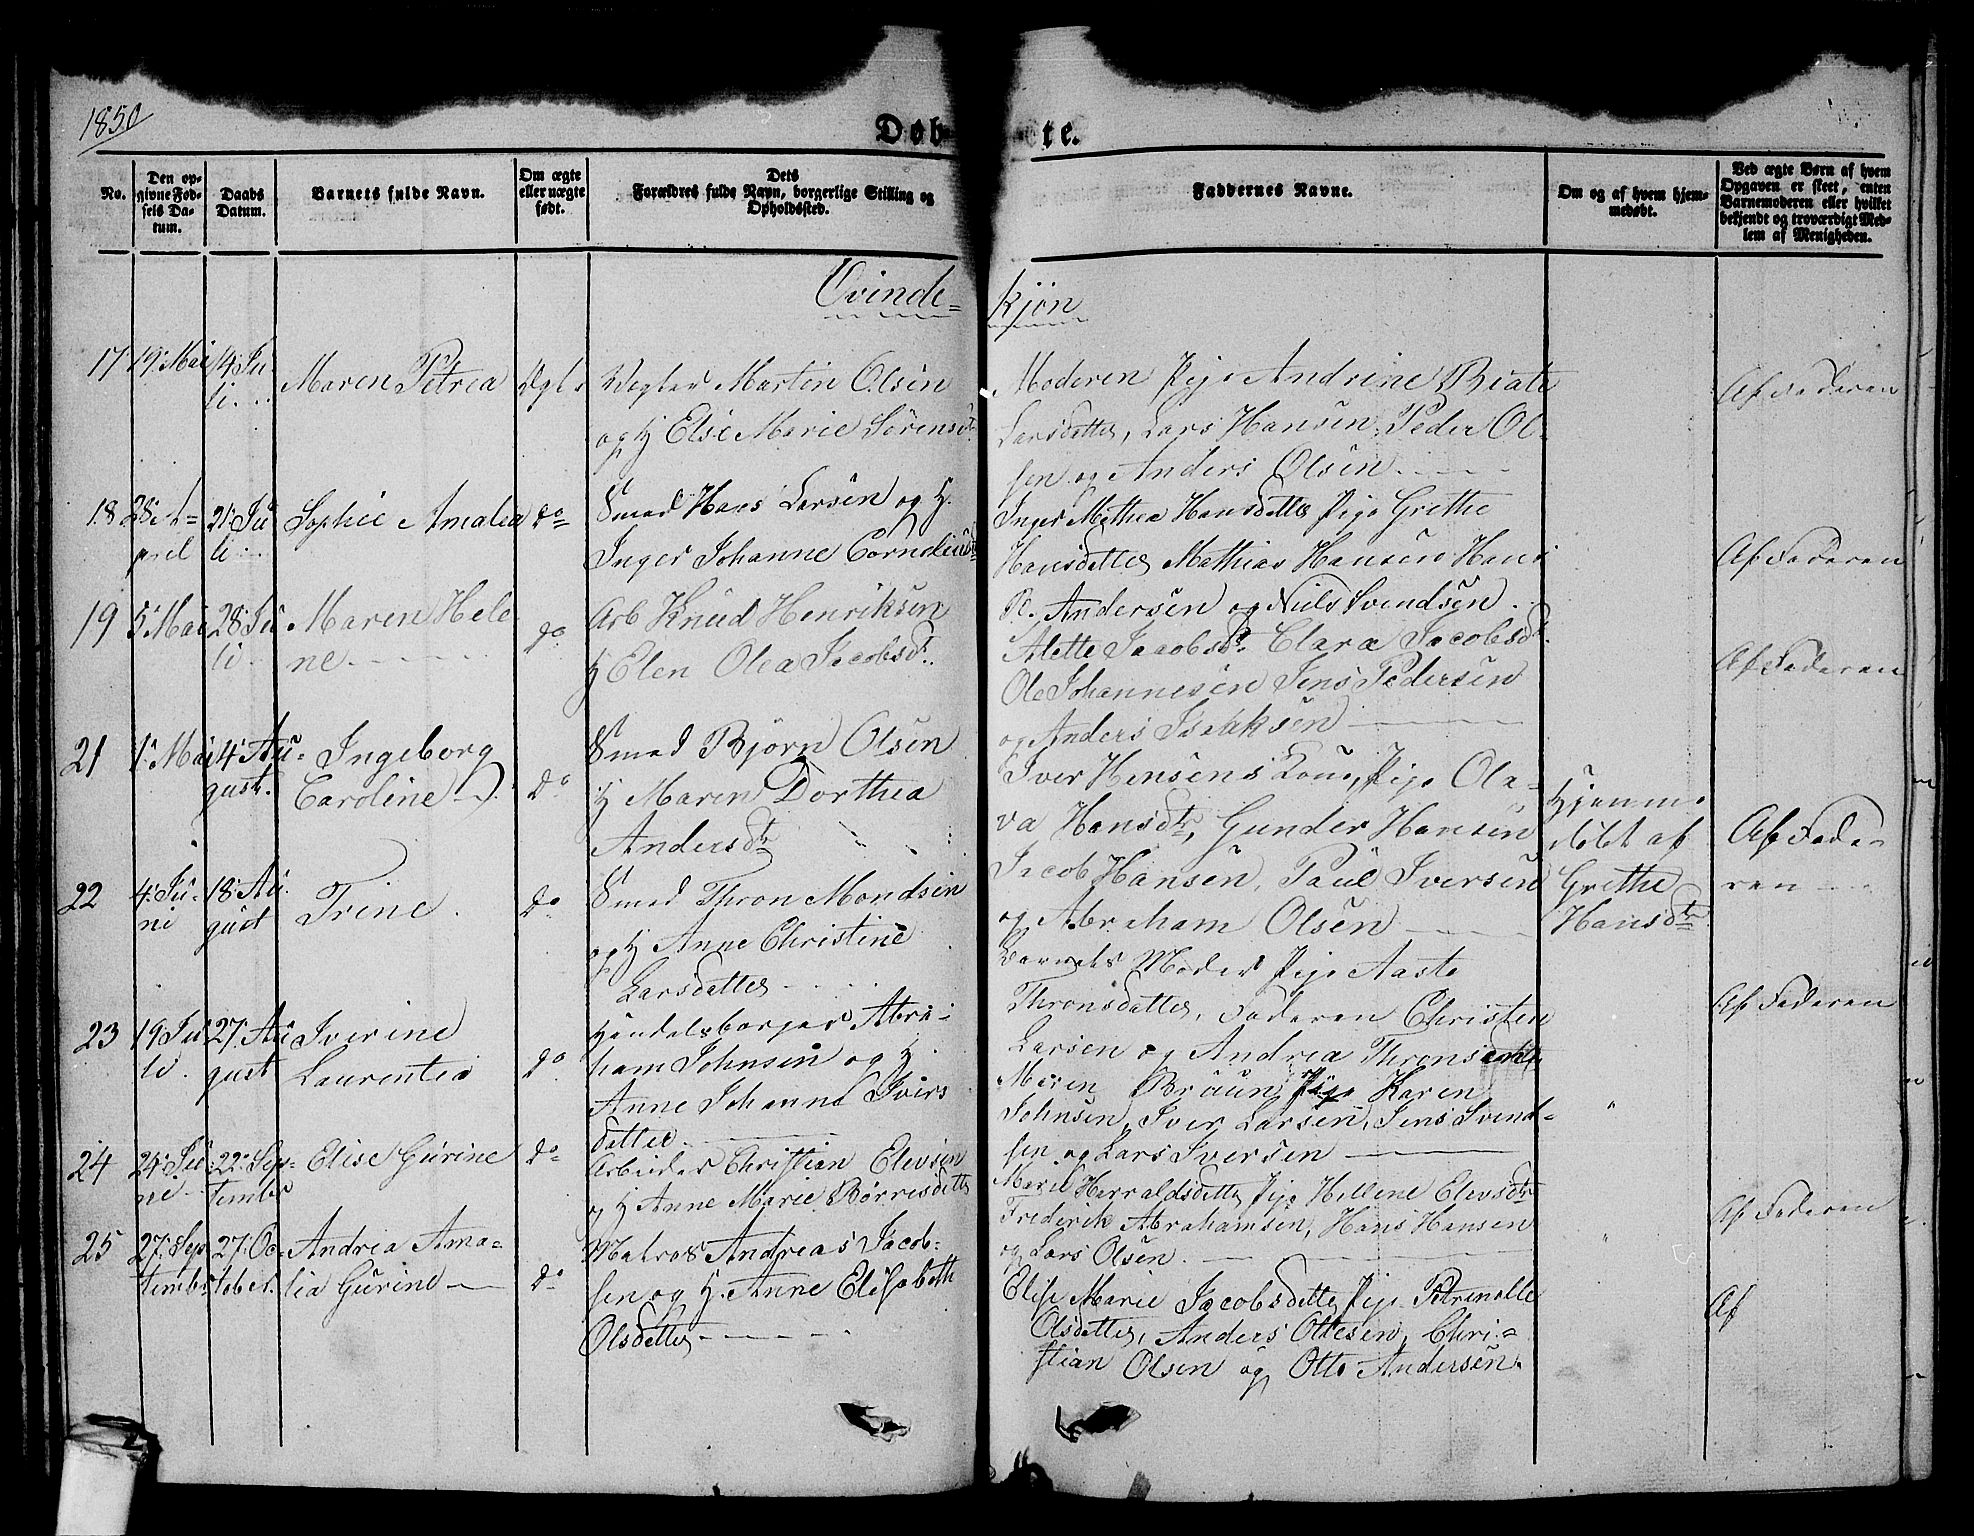 1850
Døb te.
No.
Den op-
givne Fød-
sels Da-
tum.
Daabs
Datum.
Barnets fulde Navn.
Om ægte
eller uægte
født.
Dets
Forældres fulde Navn, borgerlige Stilling og
Opholdssted.
Faddernes Navne.
Om og af hvem hjem-
medøbt.
Ved ægte Børn af hvem
Opgaven er skeet, enten
Barnemoderen eller hvilket
bekjendt og troværdigt Med-
lem af Menigheden.
Qvinde-
kjøn
17
19. Mai
14. Ju
li.
Maren Petrea
Ægt.
Martin Olsen
og H Else Marie Sørensdt.
Moderen Pige Andrine Beate
Larsdatter, Lars Hansen, Peder Ol-
sen og Anders Olsen
Af Faderen
18
28. A-
pril
21. Ju
li.
Sophie Amalea
do
Smed Hans Larsen og H.
Inger Johanne Corneliusdt
Inger Mathea Hansdatter Pige Grethe
Hansdatter Mathias Hansen Hans
P. Andersen og Niels Svendsen.
Af Faderen
19
5. Mai
28. Ju
li
Maren Hele
ne
do
Arb Knud Henriksen
H Elen Olea Jacobsdt.
Alette Jacobsdt. Clara Jacobsdt.
Ole Johannesen Jens Pedersen
og Anders Isakksen
Af Faderen
21
1. Mai
4. Au-
gust.
Ingeborg
Caroline
do
Smed Bjørn Olsen
H Maren Dorthea
Andersdtr
Iver Hensens Kone, Pige Ola-
va Hansdtr, Gunder Hansen
Jacob Hansen, Paul Iversen
og Abraham Olsen
Hjemme
døbt af
Grethe
Hansdtr
Af Fade-
ren
22
4. Ju-
ni
18. Au.
gust
Trine.
do
Smed Thron Mondsen
og H Anne Christine
Larsdatter
Barnets Moder Pige Aaste
Thronsdatter, Faderen Christen
Larsen og Andrea Thronsdatter
Af Faderen
23
19 Ju
li.
27. Au
gust
Iverine
Laurentia
do
Handelsborger Abra-
ham Johnsen og H.
Anne Johanne Ivers
datter
Maren Braun, Pige Karen
Johnsen, Iver Larsen, Jens Svend-
sen og Lars Iversen
"
24
24. Ju
ni
22. Sep-
tembr
Elise Gurine
do
Arbeider Christian Elevsen
og H Anne Marie Børresdatter
Marie Harraldsdatter Pige Hellene Elevsdtr
Frederik Abrahamsen, Hans Hansen
og Lars Olsen.
"
Af Faderen
25
27. Sep
tembr
27. Oc-
tober.
Andrea Ama-
lia Gurine
do
Matros Andreas Jacob-
sen og H. Anne Elisabeth
Olsdatter
Elise Marie Jacobsdatter Pige Petronelle
Olsdatter, Anders Ottesen, Chri-
stian Olsen og Otto Andersen.
Af